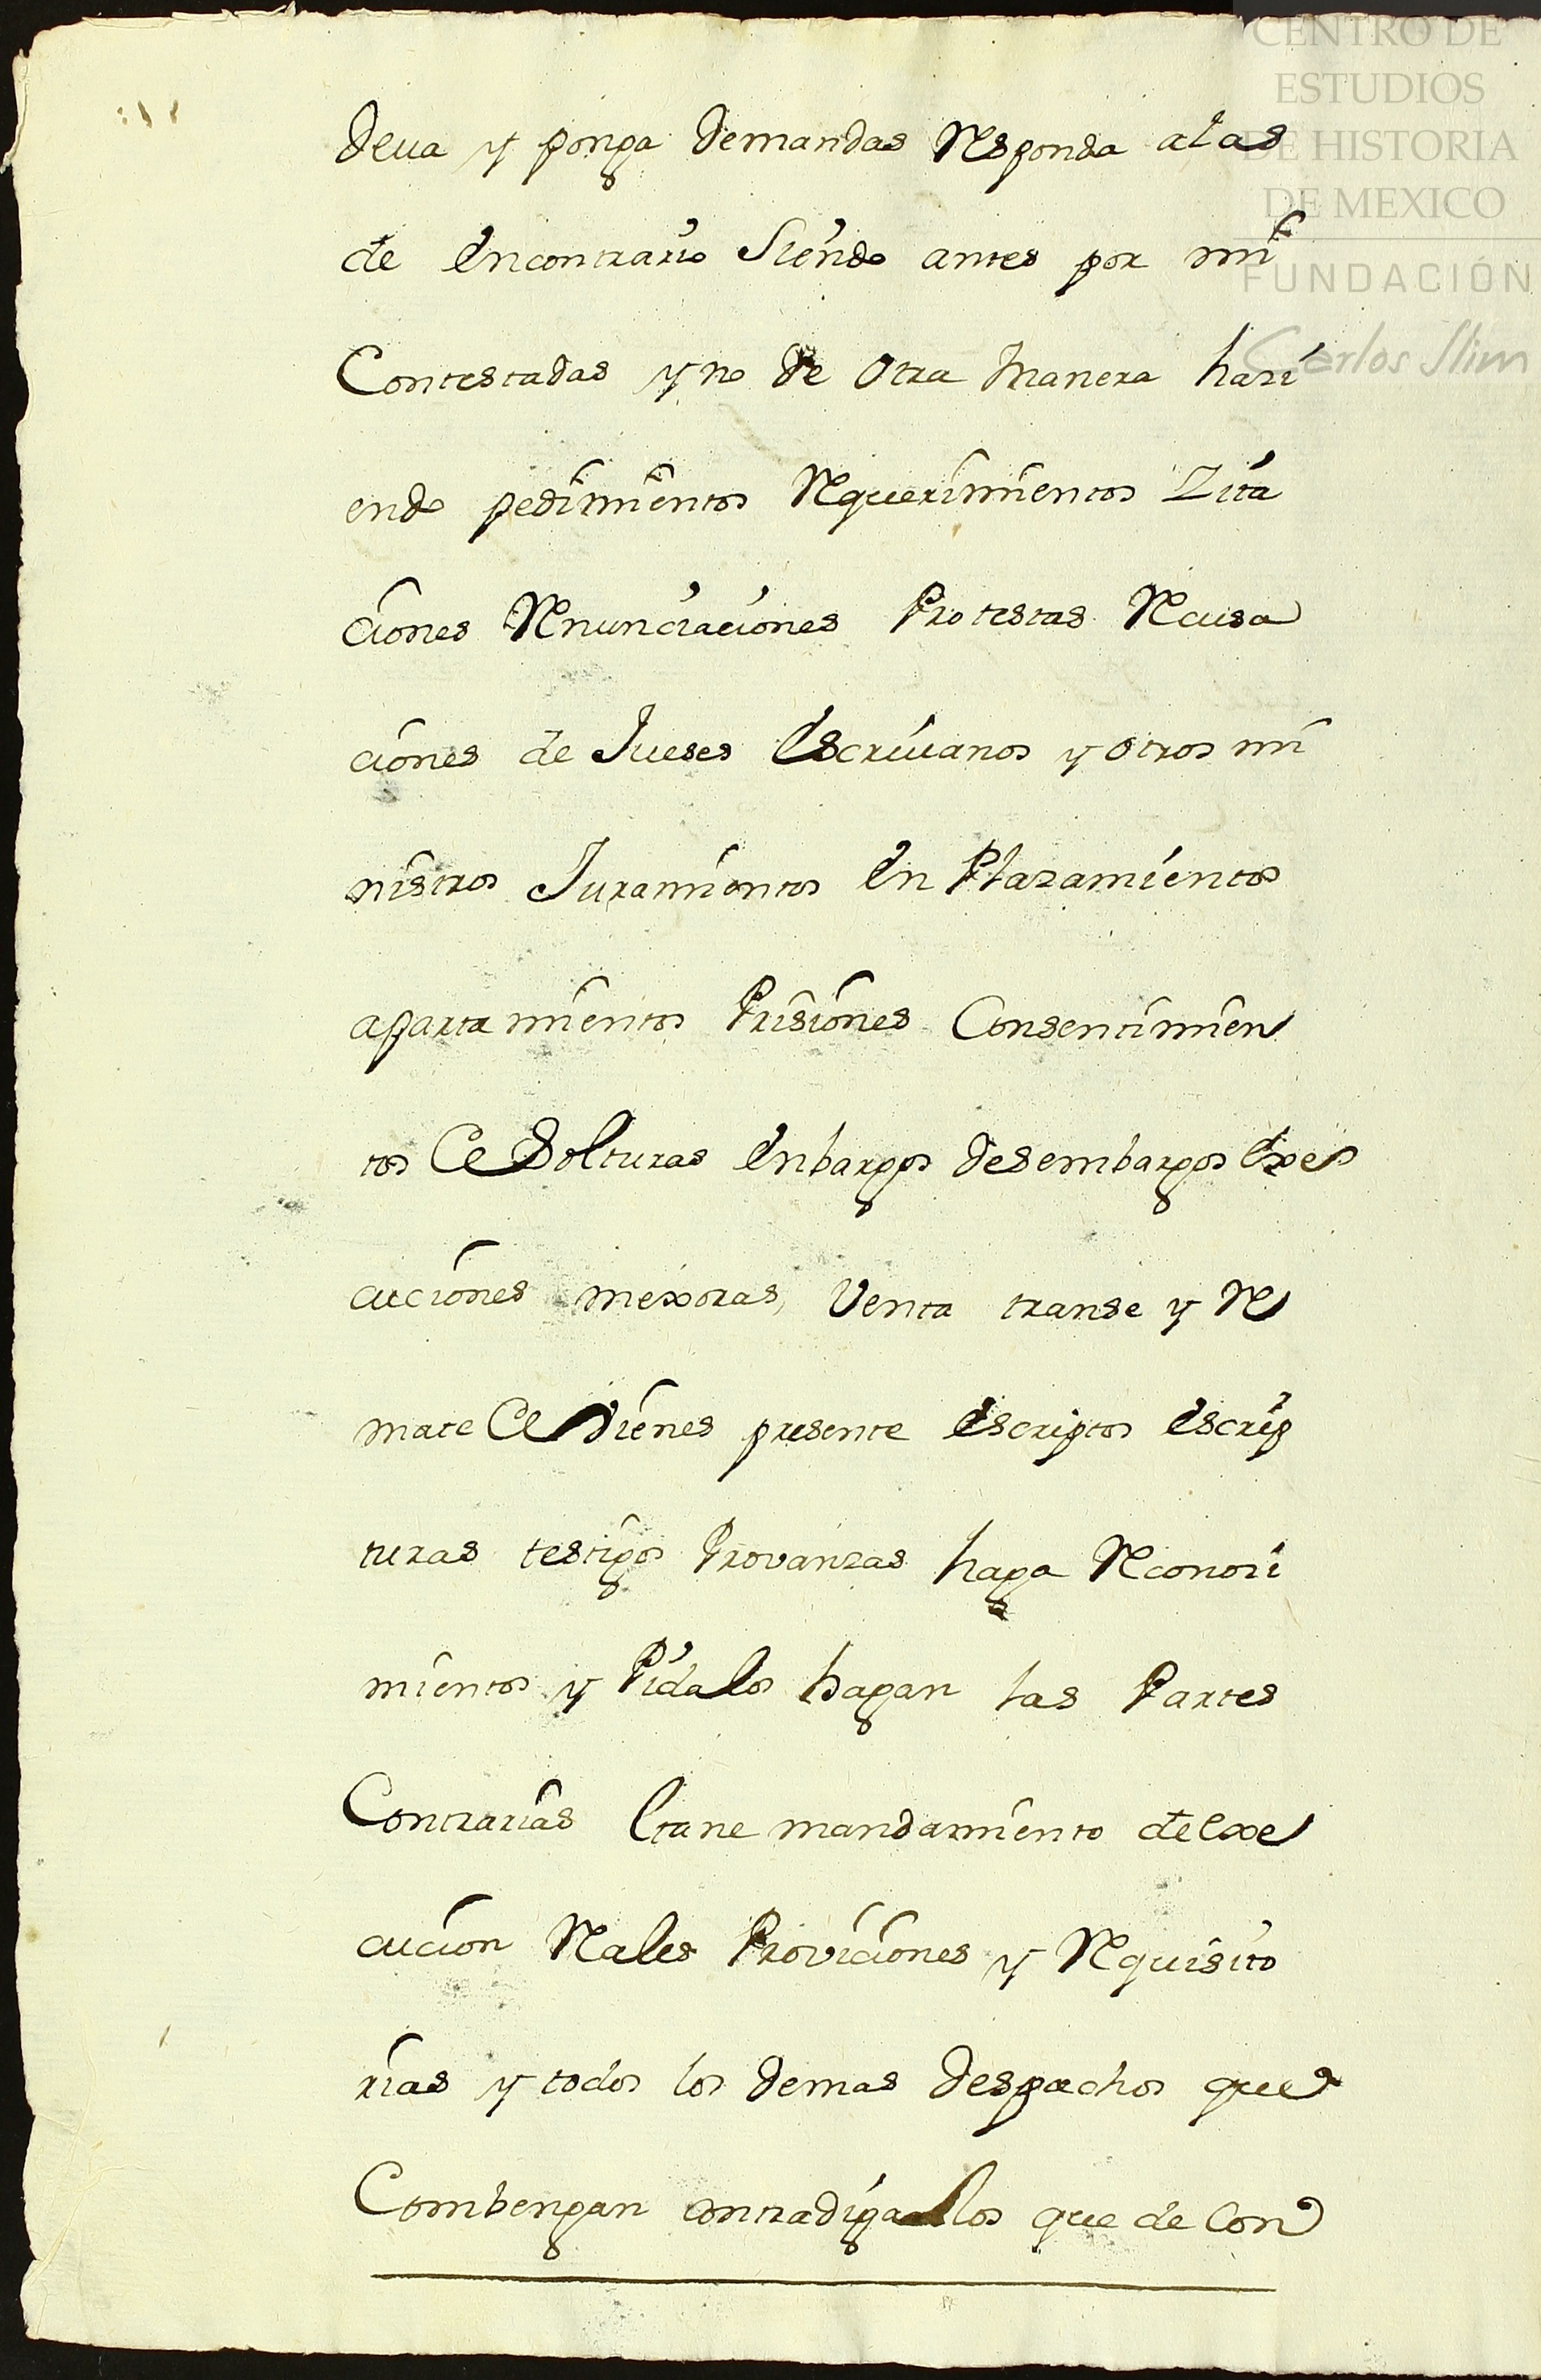 CENTRO DE
ESTUDIOS
DE HISTORIA
DE MEXICO
FUNDACIÓN
Carlos Slim
deua y ponga demandas Responda alas
de encontrario siendo antes por mi
Contestadas y no de otra manera hazi
endo pedimientos Requerimientos Zita
ciones Renunciaciones Protestas Recusa
ciones de Jueses escriuanos y otros mi
nistros Juramientos en Plazamientos
apartamientos Prisiones Consentimien
tos de Solturas enbargos desembargos exe
cuciones mexoras, Venta transe y Re
mate de vienes presente escriptos escrip
turas testigos Provanzas haga Reconozi
mientos y Pida los hagan las Partes
Contrarias Gane mandamiento de exe
cucion Reales Proviciones y Requisito
rias y todos los demas despachos que
Combengan contradiga los que de Con